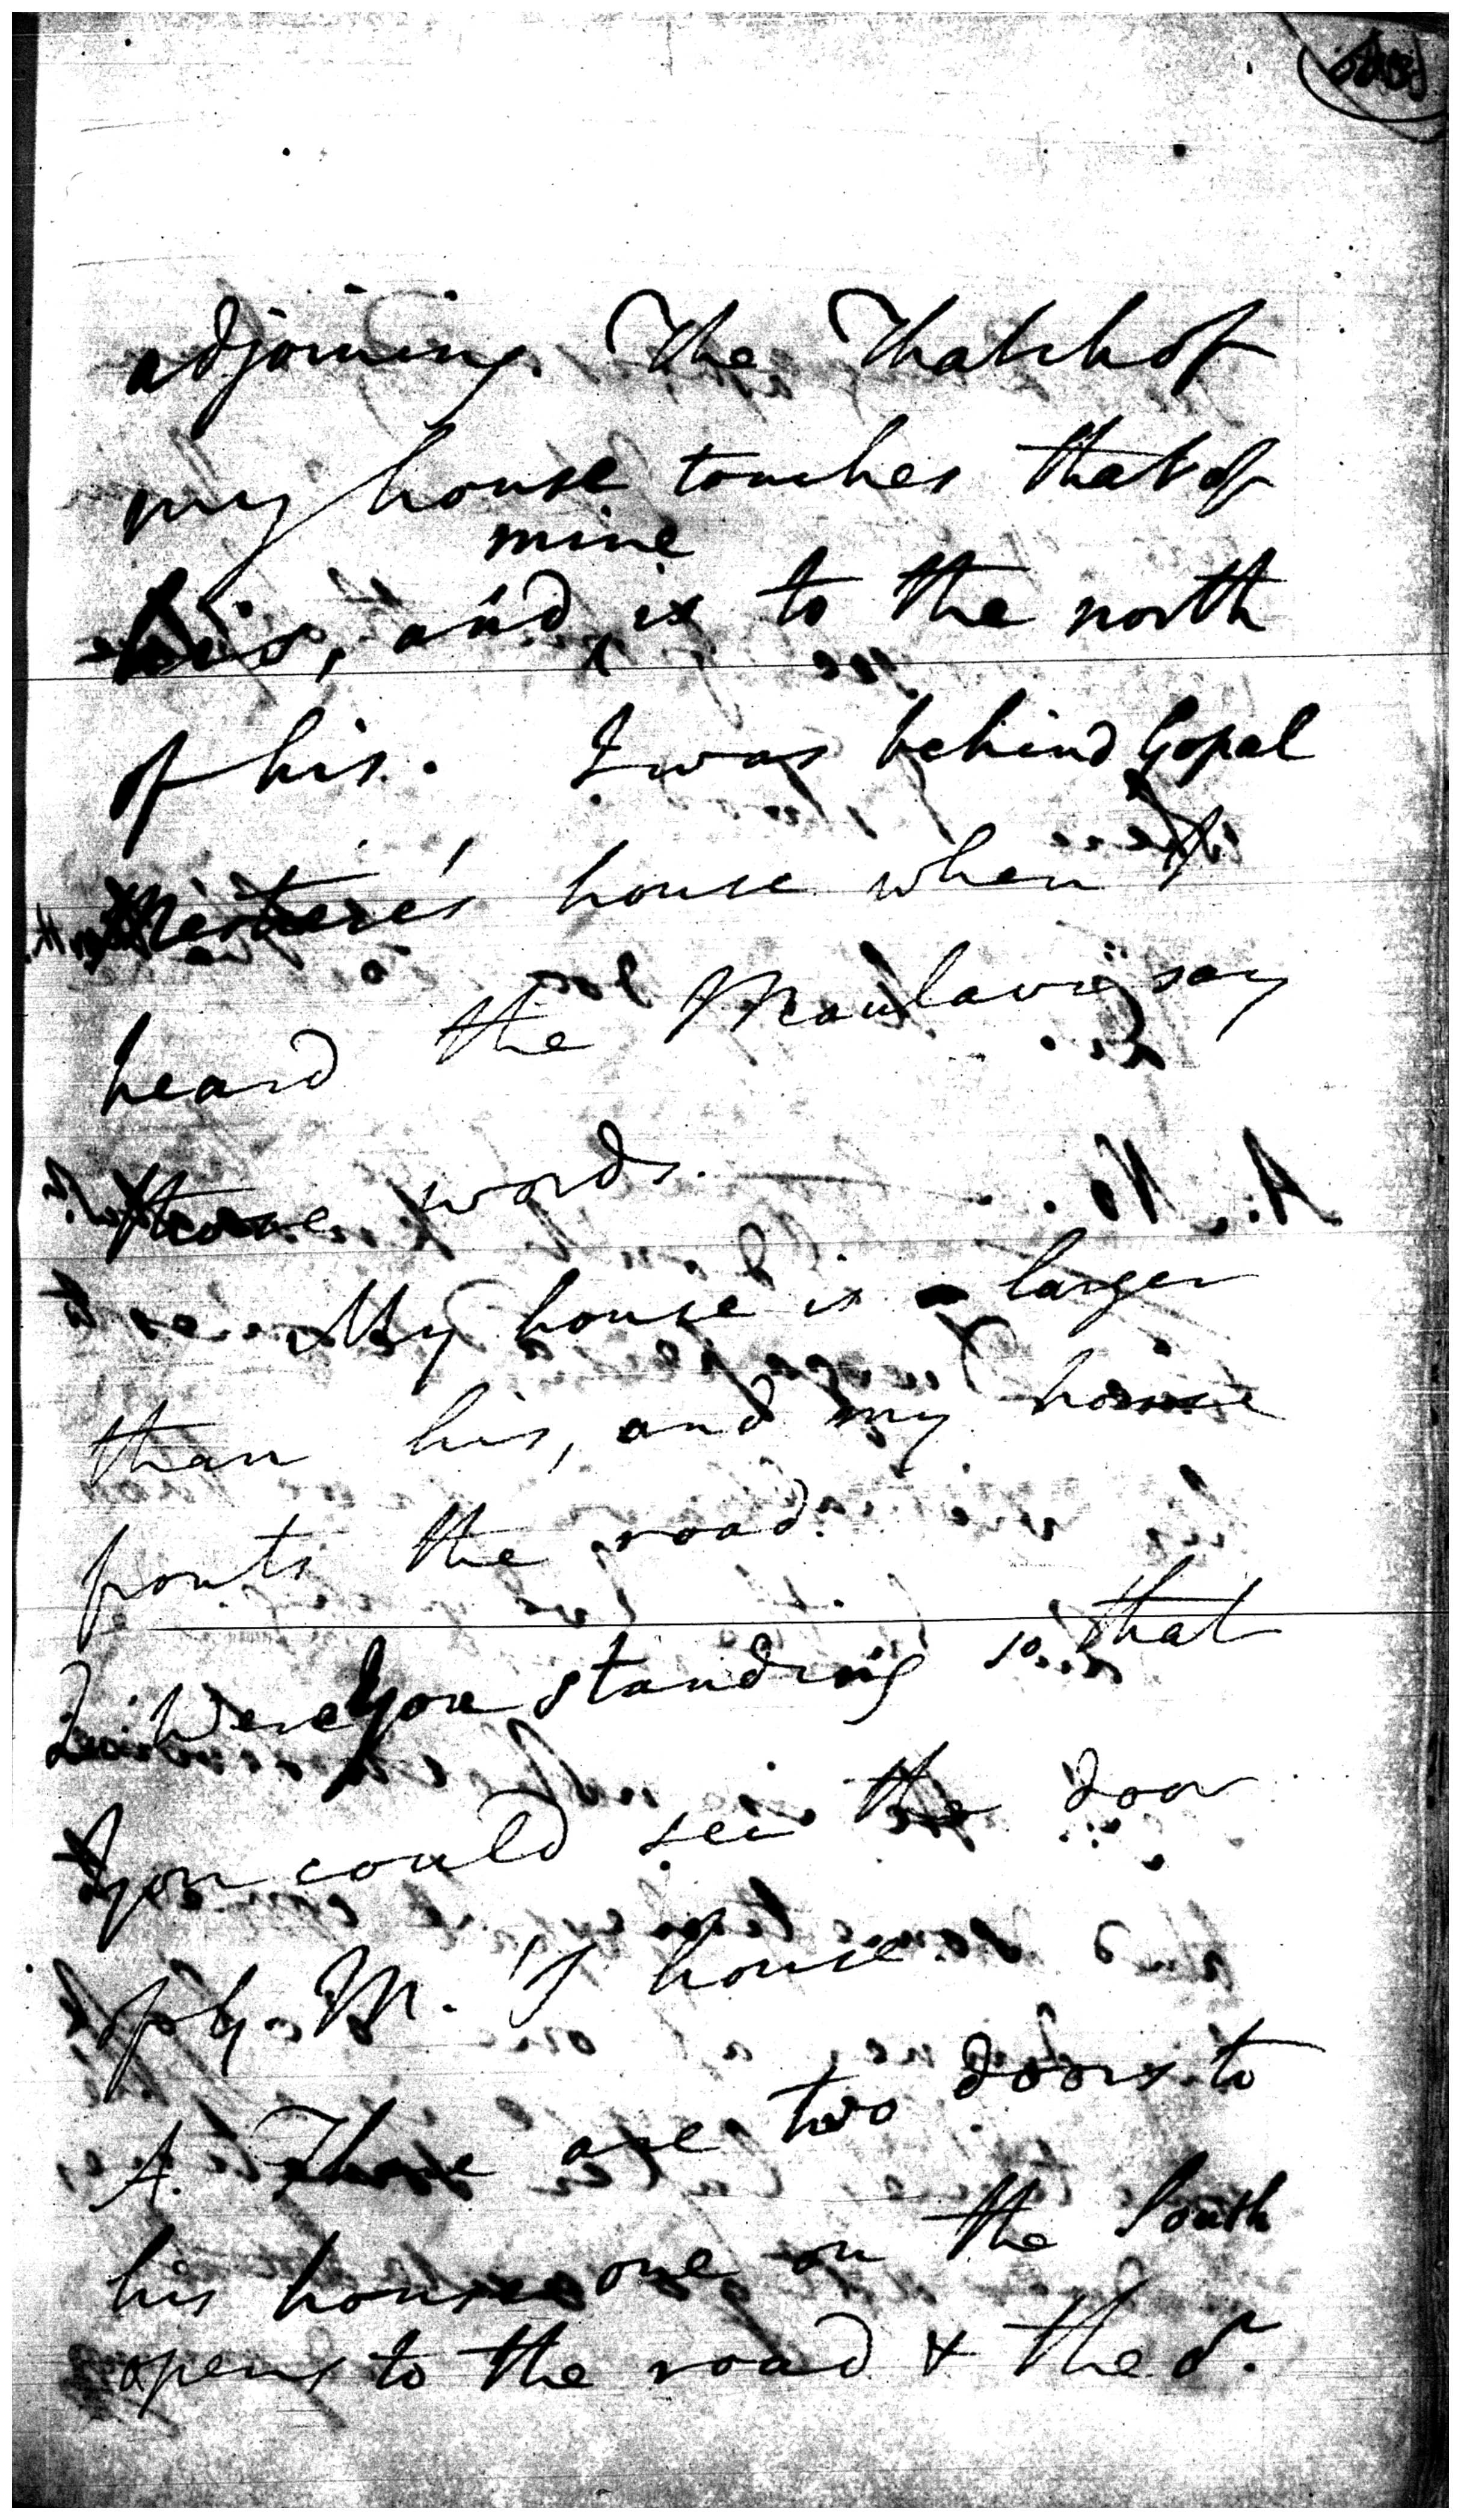 adjoining. The Thatch of
my house touches that of
mine
his, and is to the north
of his. I was behind Gopal
Mistree's house when I
heard the Moulavie say
those words.
My house is larger
than his, and my house
fronts the road.
Q. Were you standing so that
you could see the door
of G. M.'s house
A. There are two doors to
his house one on the South
opens to the road & the o.